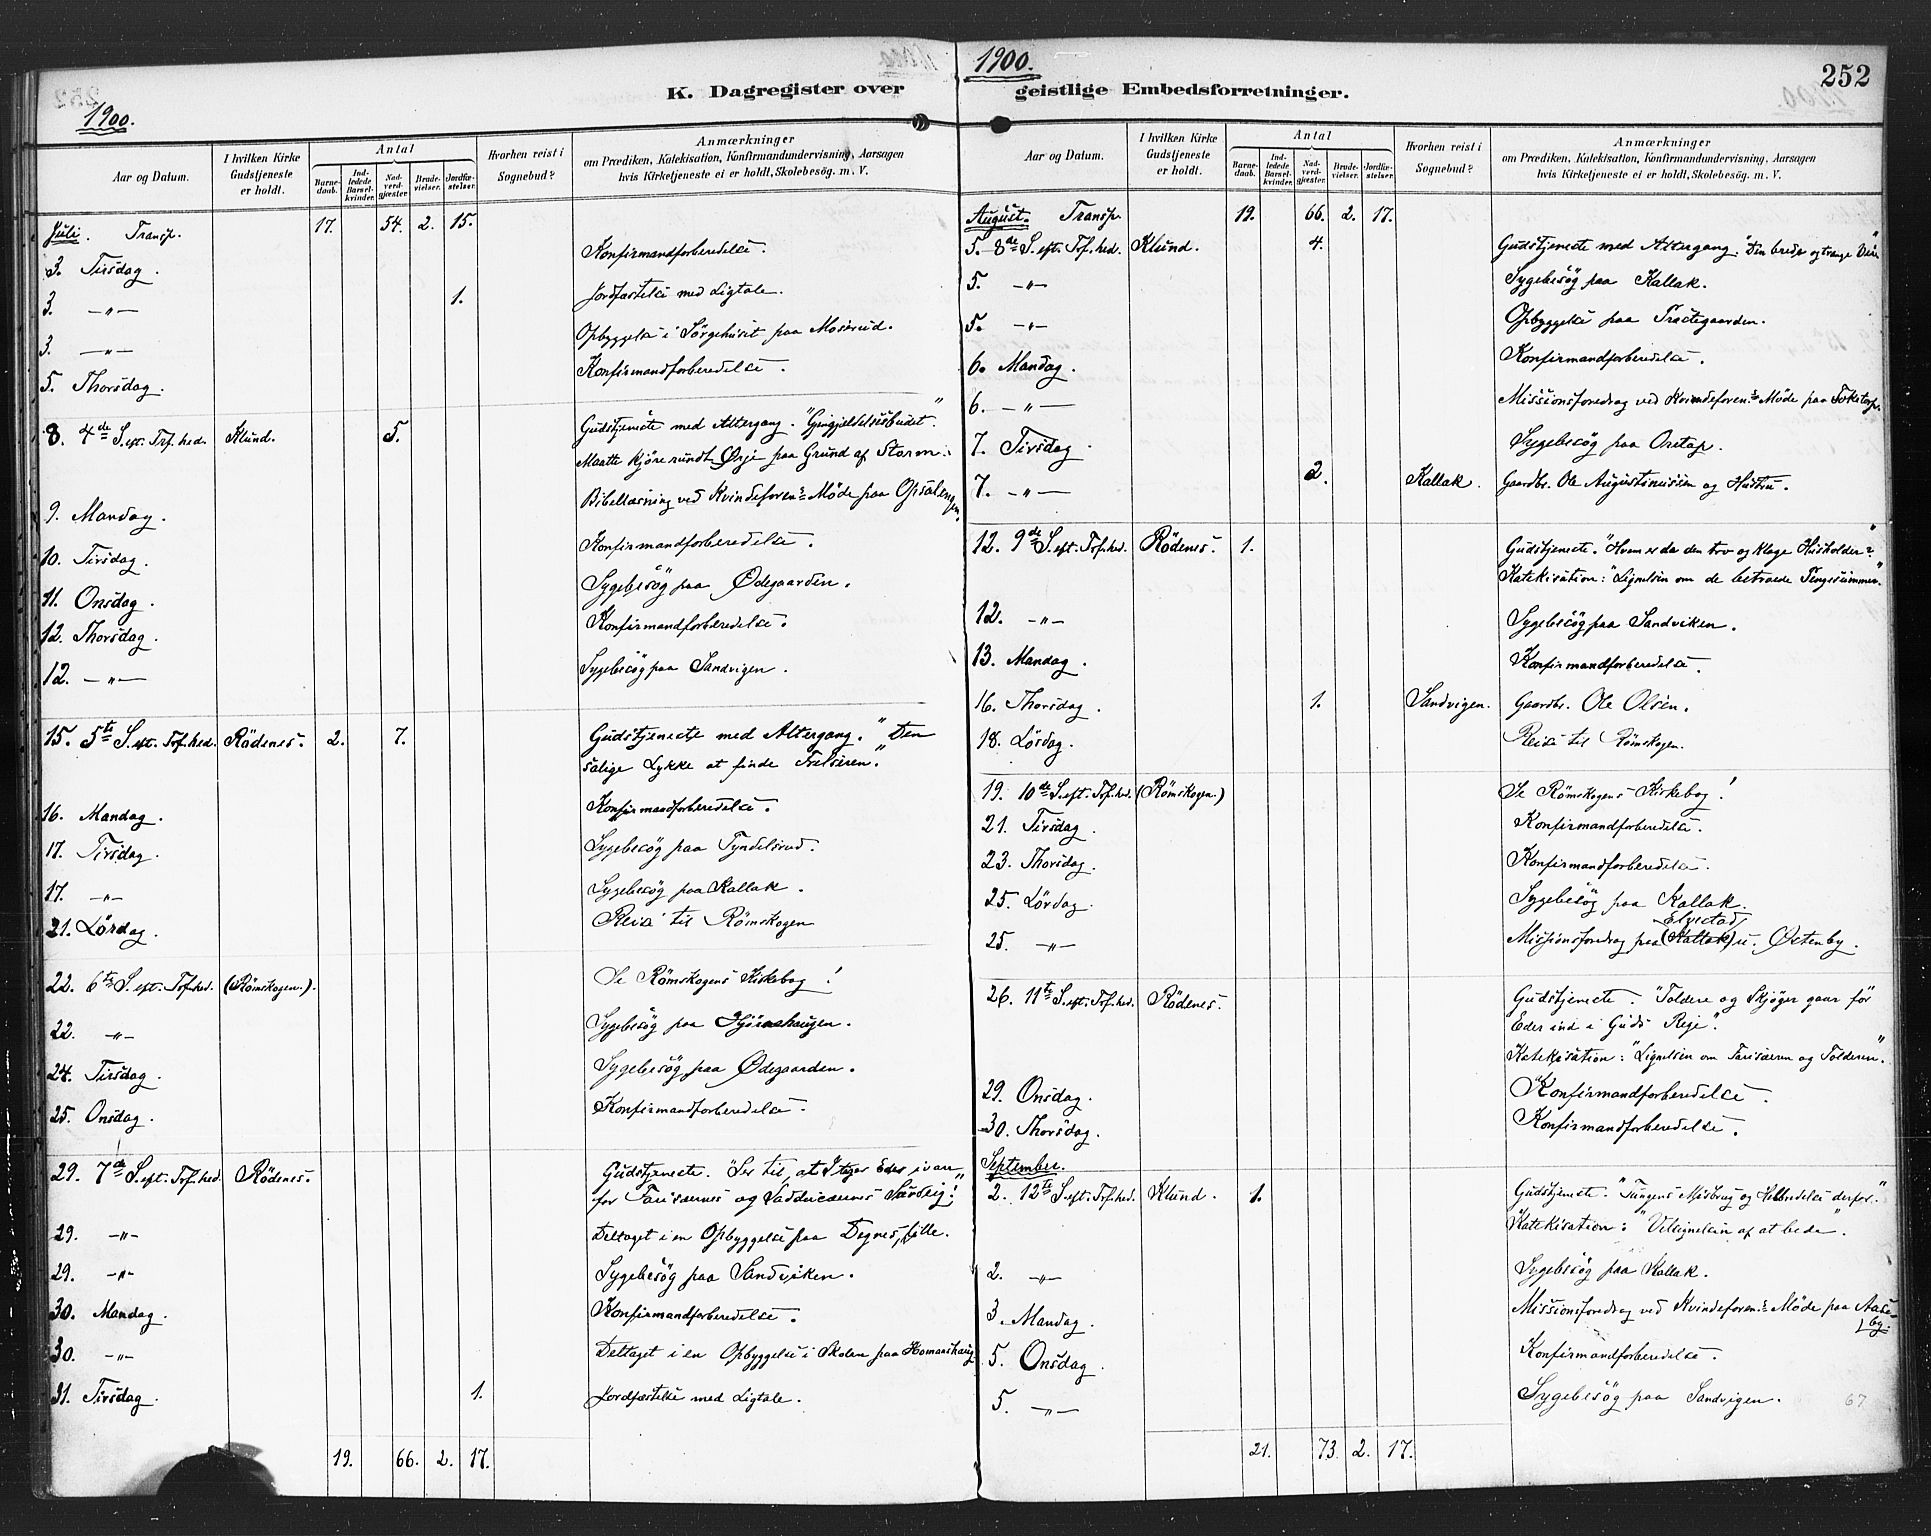 1900.
K. Dagregister over
Aar og Datum.
I hvilken Kirke Gudstjeneste er holdt.
Antal
Barnedaab.
Indledede Barselkvinder.
Nadverdgjæster.
Brudevielser.
Jordfæstelser.
Hvorhen reist i Sognebud?
Anmærkninger
om Prædiken, Katekisation, Konfirmandundervisning, Aarsagen
hvis Kirketjeneste ei er holdt, Skolebesøg. m. V.
Juli. Transp. 17. 54. 2. 15.
3. Tirsdag. Konfirmandforberedelse.
3. —„— 1. Jordfæstelse med Ligtale.
3. —„— Opbyggelse i Sørgehuset paa Moserud.
5. Thorsdag. Konfirmandforberedelse.
8. 4de S. eft. Trf. hed. Klund. 5. Gudstjeneste med Altergang. "Gjengjældelsesbudet".
Maatte kjøre rundt Ørje paa Grund af Storm.
9. Mandag. Bibellæsning ved Kvindeforen:s Møde paa Opsalengen.
10. Tirsdag. Konfirmandforberedelse.
11. Onsdag. Sygebesøg paa Ødegaarden.
12. Thorsdag. Konfirmandforberedelse.
12. —„— Sygebesøg paa Sandvigen.
15. 5te S. eft. Trf. hed. Rødenes. 2. 7. Gudstjeneste med Altergang. "Den
salige Lykke at finde Frelseren."
16. Mandag. Konfirmandforberedelse.
17. Tirsdag. Sygebesøg paa Tyndelsrud.
17. —„— Sygebesøg paa Kallak.
21. Lørdag. Reise til Rømskogen
22. 6te S. eft. Trf. hed. (Rømskogen.). Se Rømskogens Kirkebog!
22. —„— Sygebesøg paa
24. Tirsdag. Sygebesøg paa Ødegaarden.
25. Onsdag. Konfirmandforberedelse.
29. 7de S. eft. Trf. hed. Rødenes. Gudstjeneste. "Ser til, at I tager Eder ivare
for Farisæernes og Sadducæernes Surdeig!"
29. —„— Deltaget i en Opbyggelse paa
29. —„— Sygebesøg paa Sandviken.
30. Mandag. Konfirmandforberedelse.
30. —„— Deltaget i en Opbyggelse i Skolen paa Homanshaug
31. Tirsdag. 1. Jordfæstelse med Ligtale.
19. 66. 2. 17.
1900.
252
geistlige Embedsforretninger.
Aar og Datum.
I hvilken Kirke Gudstjeneste er holdt.
Antal
Barnedaab.
Indledede Barselkvinder.
Nadverdgjæster.
Brudevielser.
Jordfæstelser.
Hvorhen reist i Sognebud?
Anmærkninger
om Prædiken, Katekisation, Konfirmandundervisning, Aarsagen
hvis Kirketjeneste ei er holdt, Skolebesøg. m. V.
August. Transp. 19. 66. 2. 17.
5. 8de S. eft. Trf. hed. Klund. 4. Gudstjeneste med Altergang. "Den brede og trange Vei"
5. —„— Sygebesøg paa Kallak.
5. —„— Opbyggelse paa Præstegaarden.
6. Mandag. Konfirmandforberedelse.
6. —„— Missionsforedrag ved Kvindeforen:s Møde paa Toketorp.
7. Tirsdag. Sygebesøg paa
7. —„— 2. Kallak. Gaardbr. Ole Augustinussen og Hustru.
12. 9de S. eft. Trf. hed. Rødenes. 1. Gudstjeneste. "Hvem er da den tro og kloge Husholder?"
Katekisation: "Lignelsen om de betroede Pengesummer."
12. —„— Sygebesøg paa Sandviken.
13. Mandag. Konfirmandforberedelse.
16. Thorsdag. 1. Sandvigen. Gaardbr. Ole Olsen.
18. Lørdag. Reise til Rømskogen.
19. 10de S. eft. Trf. hed. (Rømskogen.) Se Rømskogens Kirkebog!
21. Tirsdag. Konfirmandforberedelse.
23. Thorsdag. Konfirmandforberedelse.
25. Lørdag. Sygebesøg paa Kallak.
Elvestad
25. —„— Missionsforedrag paa (Kallak) u. Østenby.
26. 11te S. eft. Trf. hed. Rødenes. Gudstjeneste. "Toldere og Skjøger gaar før
Eder ind i Guds Rige".
Katekisation: "Lignelsen om Farisæeren og Tolderen".
29. Onsdag. Konfirmandforberedelse.
30. Thorsdag. Konfirmandforberedelse.
September.
2. 12te S. eft. Trf. hed. Klund. 1. Gudstjeneste. "Tungens Misbrug og Helbredelse derfor."
Katekisation: "Velsignelsen af at bede".
2. —„— Sygebesøg paa Kallak.
3. Mandag. Missionsforedrag ved Kvindeforen:s Møde paa Aaseby.
5. Onsdag. Konfirmandforberedelse.
5. —„— Sygebesøg paa Sandvigen. 67
21. 73. 2. 17.